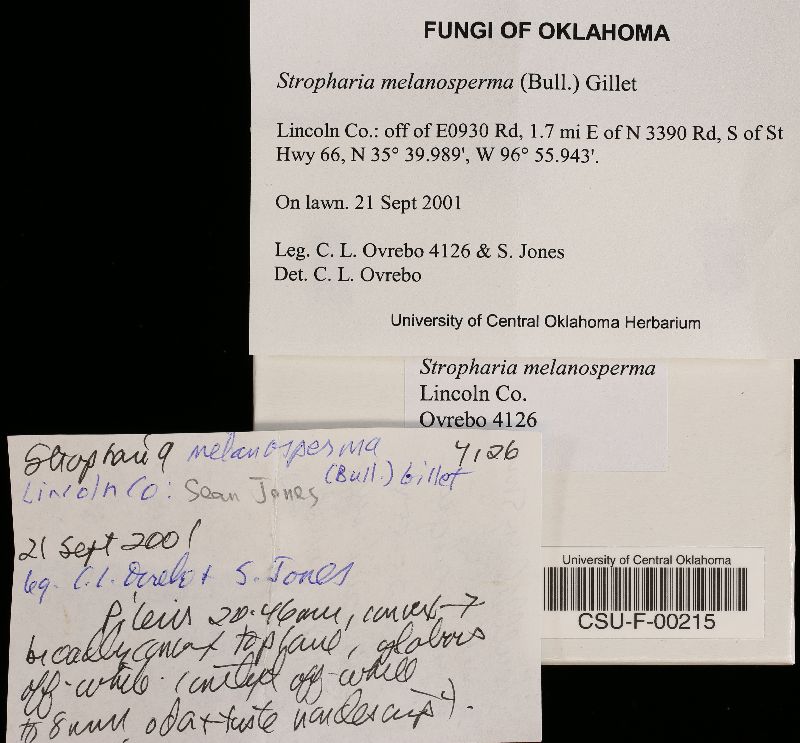 FUNGI OF OKLAHOMA
Stropharia melanosperma (Bull.) Gillet
Lincoln Co.: off of E0930 Rd, 1.7 mi E of N 3390 Rd, S of St
Hwy 66, N 35° 39.989', W 96° 55.943'.
On lawn. 21 Sept 2001
Leg. C. L. Ovrebo 4126 & S. Jones
Det. C. L. Ovrebo
University of Central Oklahoma Herbarium
Stropharia melanosperma
Lincoln Co.
Ovrebo 4126
Stropharia melanosperma 4126
(Bull.) Gillet
Lincoln Co: Sean Jones
21 Sept 2001
leg. C.L. Ovrebo + S. Jones
Pileus 20-46mm, convex →
broadly convex to plane, glabrous
off-white. Context off-white
to 8mm, odor + taste nondescript.
University of Central Oklahoma
CSU-F-00215